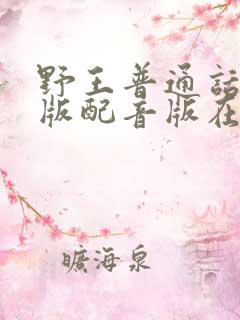 野王普通话
版配音版在
旷海泉